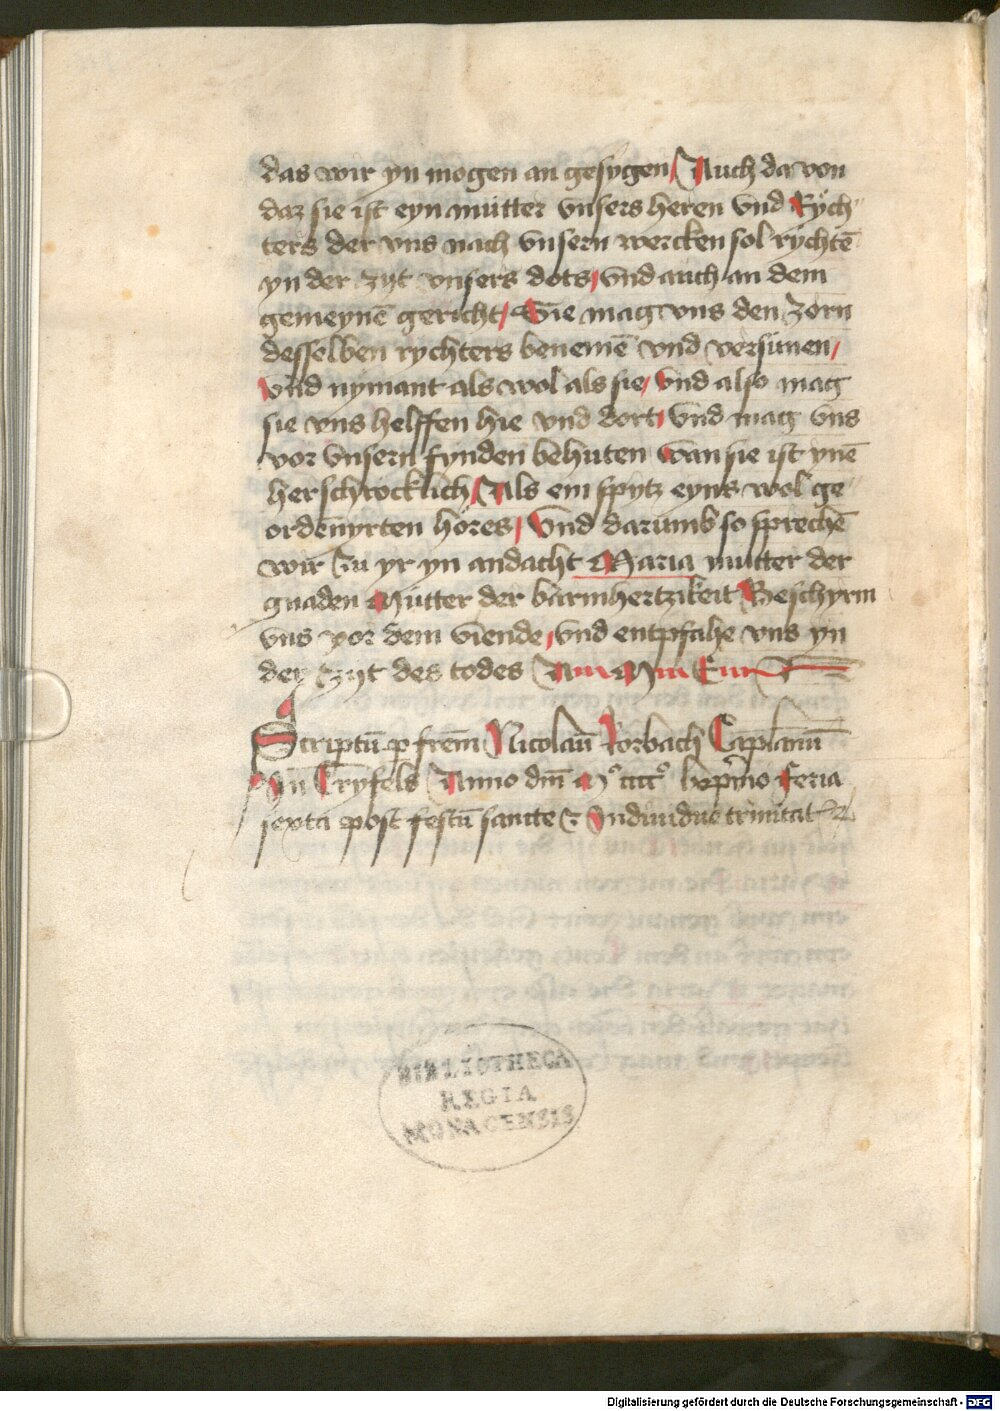 das wir yn mogen an gesygen / Auch da von
daz sie ist eyn mutter vnsers heren vnd Rych
ters der vns nach vnsern wercken sol rychtē
yn der zyt vnsers dots / vnd auch an dem
gemeynē gericht / Sie mag vns den zorn
desselben rychters benemē vnd versunen /
vnd nymant als wol als sie / vnd also mag
sie vns helffen hie vnd dort / vnd mag vns
vor vnsern fynden behuten wan sie ist ynē
herschrocklich / Als ein spytz eyns wol ge
ordenyrten hores / vnd darumb so sprechē
wir zu yr yn andacht Maria mutter der
gnaden Mutter der barmhertzikeit Beschyrm
vns vor dem viende / vnd entpfahe vns yn
der zyt des todes Am
Scriptū p frēm Nicolaū Rorbach Caplanū
In Tryfels Anno dm̄ Mº ccccº
sexta post festū sancte & Indiuidue trinitat
BIBLIOTHECA
REGIA
MONACENSIS
Digitalisierung gefördert durch die Deutsche Forschungsgemeinschaft - DFG